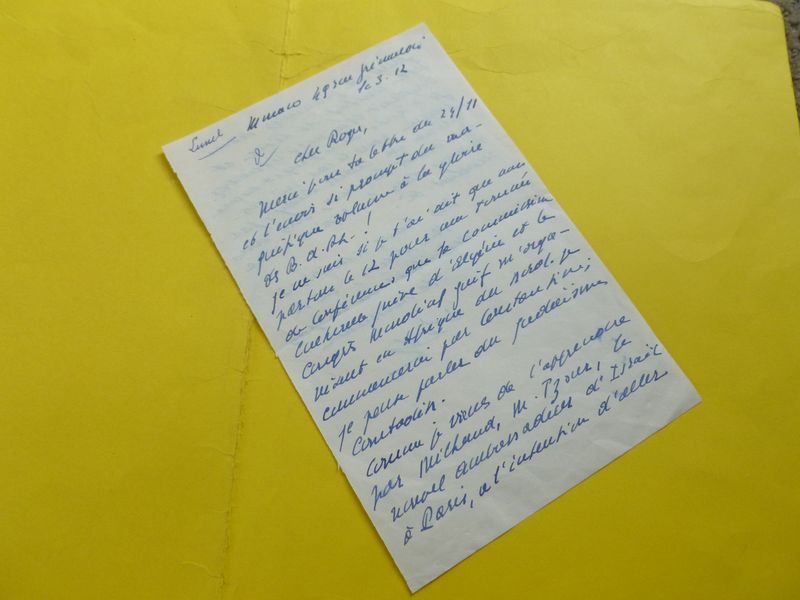 Lunel Monaco 49 rue Grimaldi
le 3.12
Cher Roger,
Merci pour ta lettre du 24/11
et l'envoi si prompt du ma-
gnifique volume à la gloire
des B. d. Rh. !
Je ne sais si je t'ai dit que nous
partons le 12 pour une tournée
de conférences que la commission
culturelle juive d'Algérie et le
Congrès Mondial Juif m'orga-
nisent en Afrique du nord. Je
commencerai par Constantine,
je peux parler du judaïsme
Comtadin.
Comme je viens de l'apprendre
par Milhaud, M. Tzour, le
nouvel ambassadeur d'Israël
à Paris, a l'intention d'aller